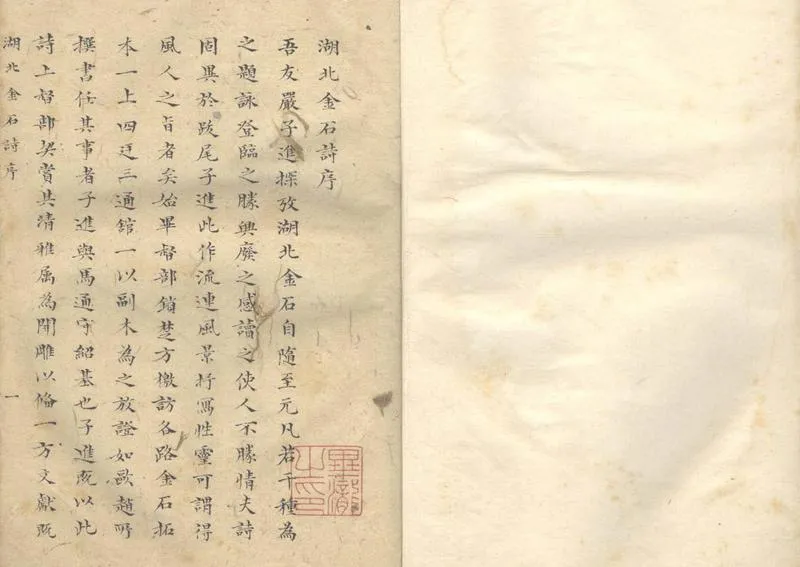 湖北金石詩序
吾友嚴子進探攷湖北金石自隨至元凡若干種為
之題詠登臨之勝興廢之感讀之使人不勝情夫詩
固異於跋尾子進此作流連風景抒寫性靈可謂得
風人之旨者矣始畢督部鎮楚方檄訪各路金石拓
本一上四三通館一以副本為之攷證如歐趙所
撰書任其事者子進與馬通守紹基也子進既以此
詩上督部契賞其清雅属為開雕以俻一方文獻既
湖北金石詩序 一